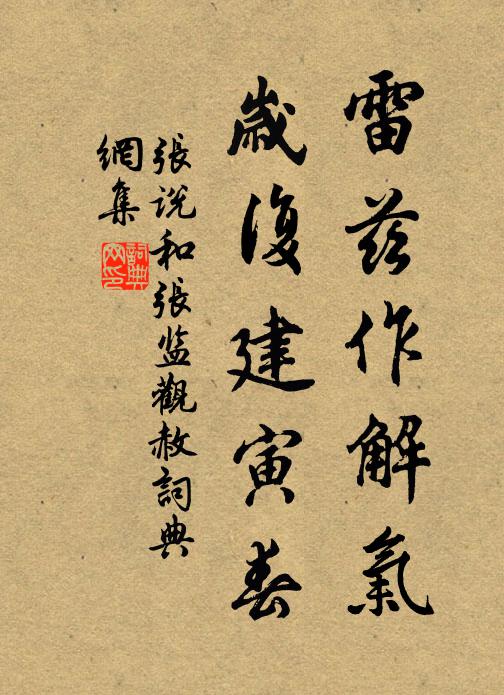 雷茲作解氣
歲復建寅春
張說和張监觀赦詞典
網集
詞典
网印